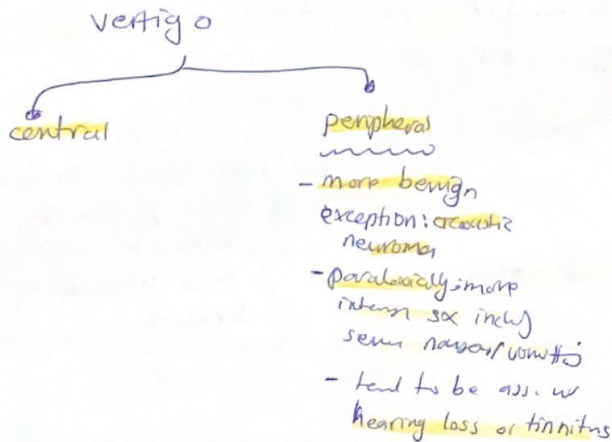 vertigo
central
peripheral
- more benign
exception: acoustic
neuroma
- paradoxically: more
intense sx incl
severe nausea/vomitting
- tend to be ass. w
hearing loss or tinnitus